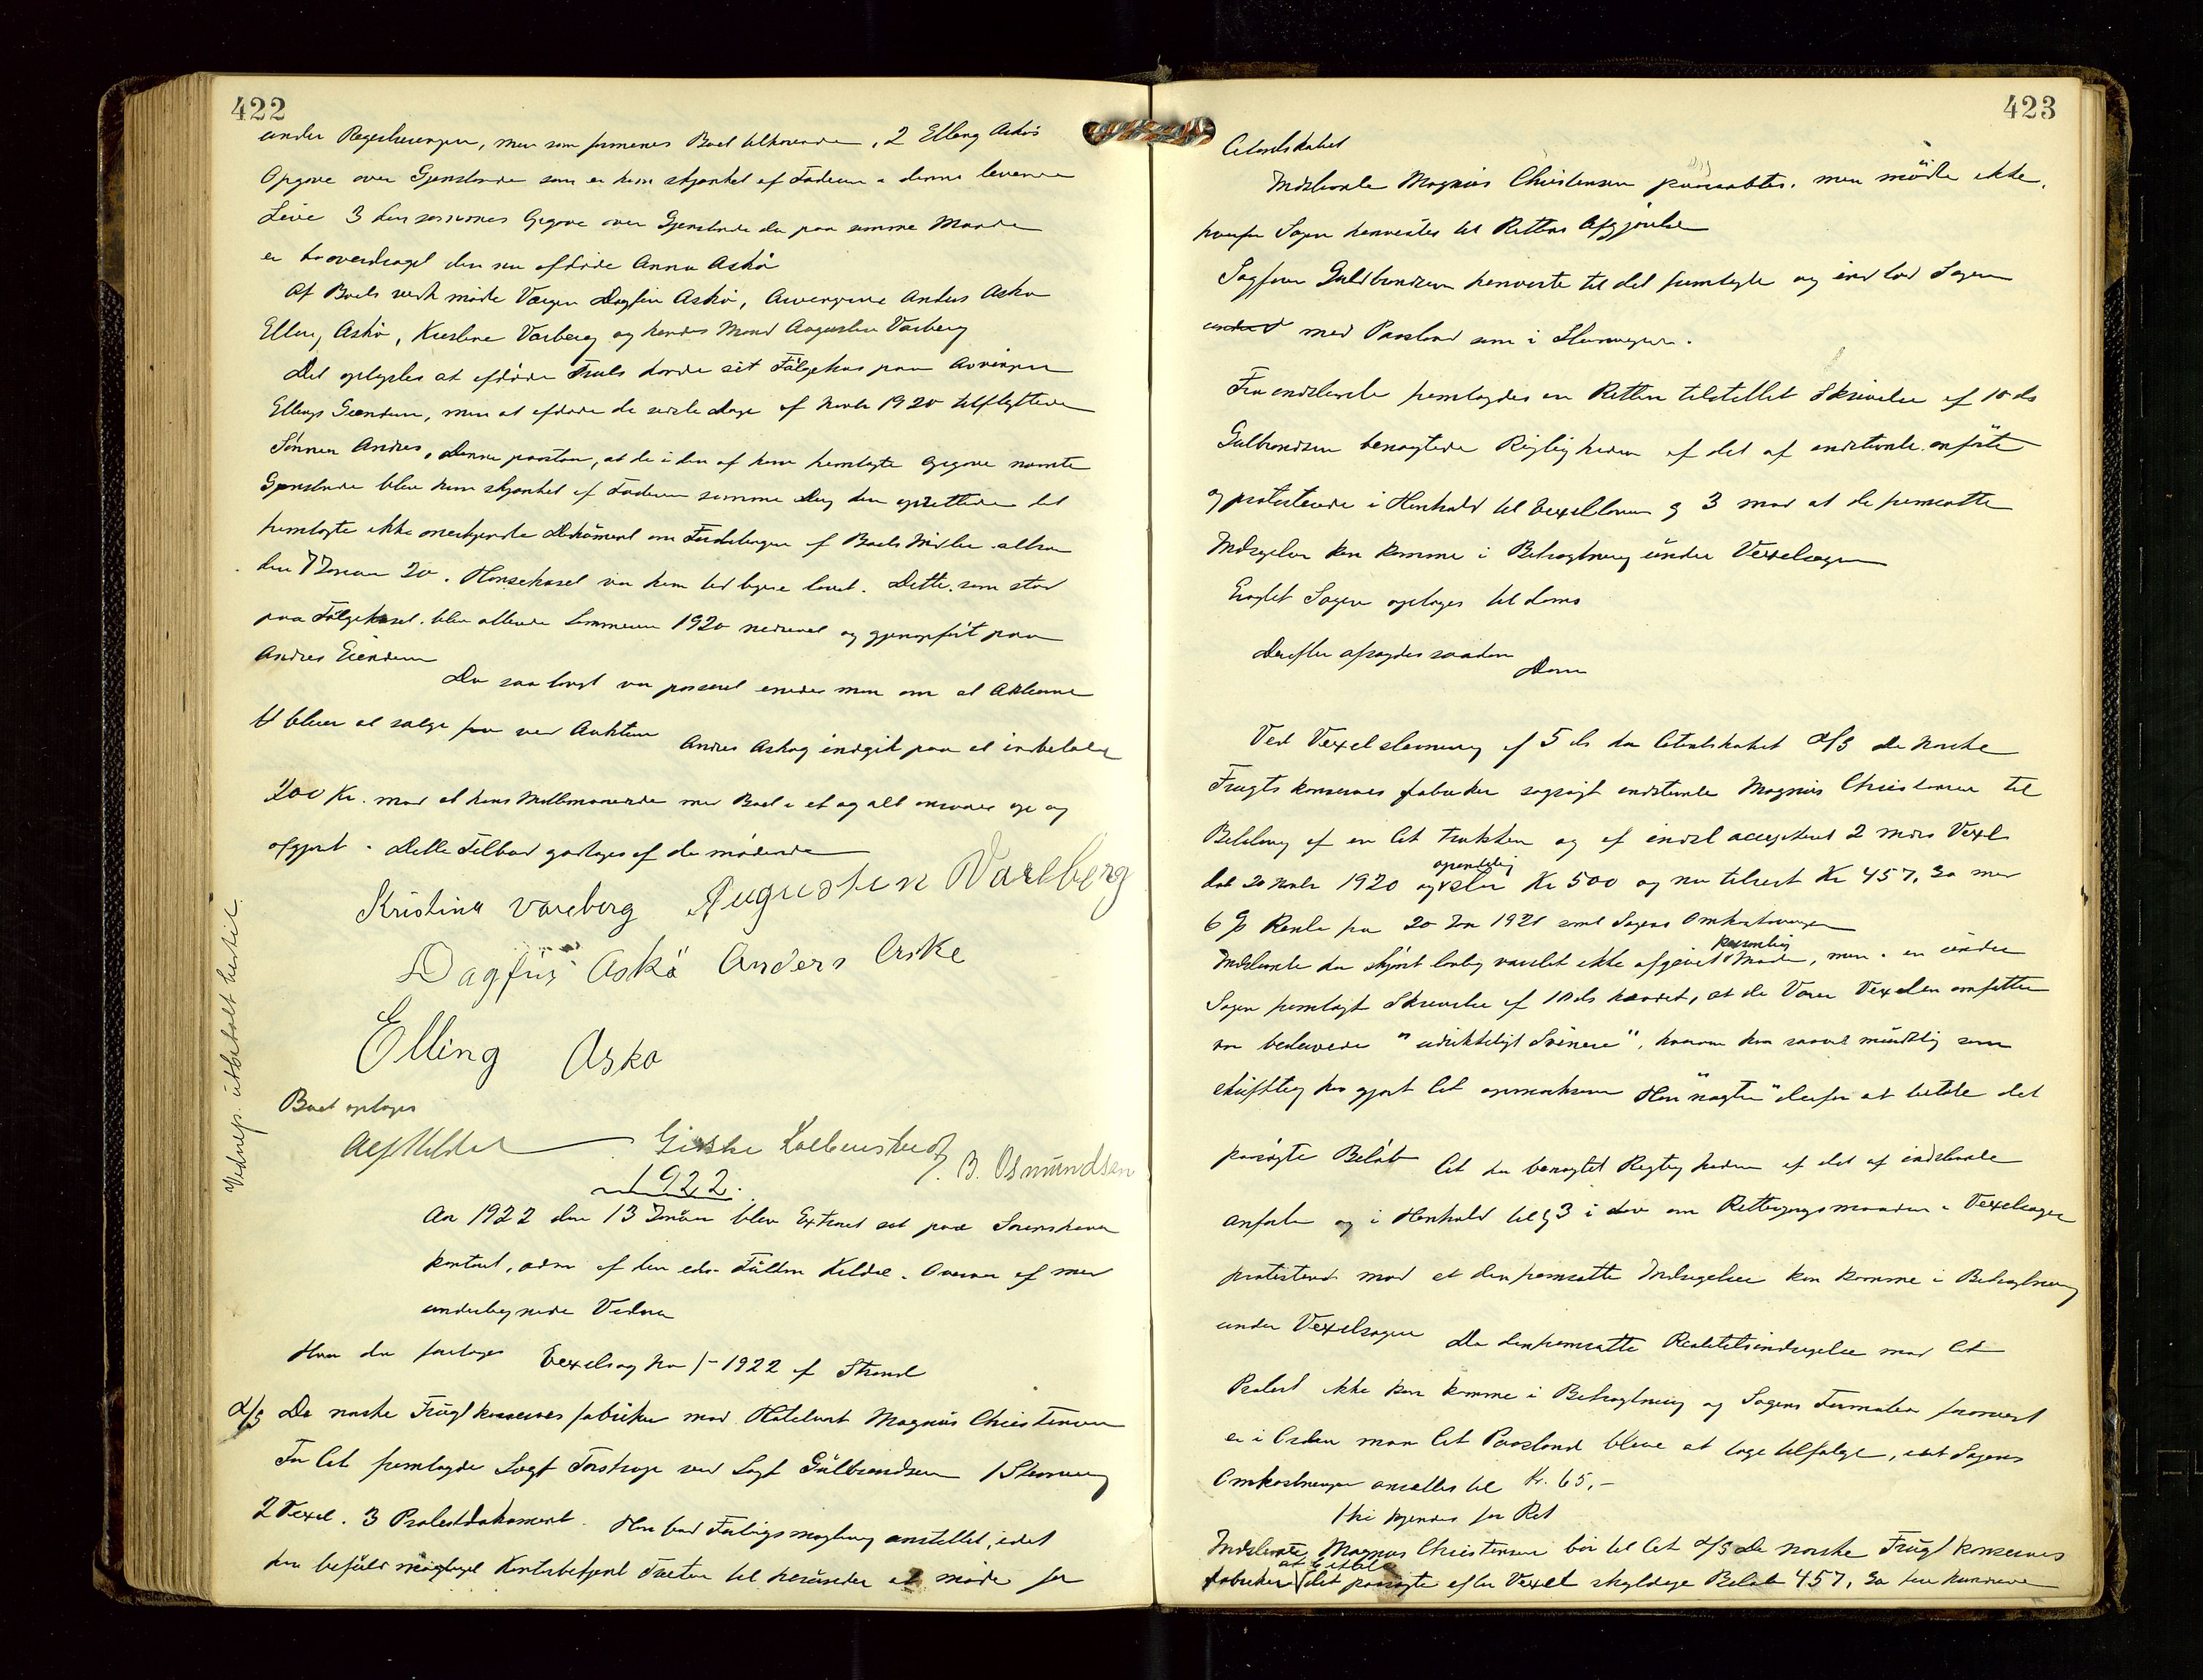 422
under Registreringen, men som formenes Boet tilhørende, 2 Elling Askøs
Opgave over Gjenstande som er ham skjænket af Faderen i denne levende
Live 3 hans Gjenstande der paa samme Maade
er overdraget den nu afdøde Anna Askø
Af Boets mødte Værgen Dagfin Askø, Arvingerne Anders Askø
Elling Askø, Kristine Varberg og hendes Mand Augustin Varberg
Det oplystes at afdøde havde sit Følgehus paa Arvingen
Ellings Eiendom, men at afdøde de sidste Dage af 1920 tilflyttede
Sønnen Andres. Denne paastaar, at de i den af ham fremlagte Opgave nævnte
Gjenstande blev ham skjænket af Faderen samme Dag den oprettede det
fremlagte ikke Dokument om Fordelingen af Boets Midler altsaa
den 7 Januar 20. Hønsehuset var ham tidligere lovet. Dette, som stod
paa Følgehuset, blev allerede Sommeren 1920 nedrevet og gjenopført paa
Andres Eiendom
Da saa langt var passeret enedes man om at Aktierne
blir at sælge ved Auktion Andres Askøy indgik paa at indbetale
200 Kr. mod at hans Mellemværende med Boet i et og alt ansees op og
afgjort. Dette Tilbud godtages af de mødende
Kristina Vareberg Augustin Vareberg
Dagfin Askø Anders Aske
Elling Asko
Boet optages
Alf Kildal Giske Kolbenstvedt
J. B. Osmundsen
Vidnep. utbetalt hertil.
1922.
Aar 1922 den 13 Januar blev Extraret sat paa Sorenskriver
kontoret, adm af den edsv Fuldm Kildal. Overvær af med
undertegnede Vidner
Hvor da foretoges Vexelsag No 1-1922 af Strand
A/S De norske Frugtkonservesfabriker mod Hotelvert Magnus Christensen
For Cit fremlagde Sagf Tastrup ved Sagf Gulbrandsen 1 Stevning
2 Vexel. 3 Protestdokument. Han bad Forligsmægling anstillet, idet
han befuldmægtiget Kontorbetjent Tveten til herunder at møde for
423
Citantskabet
Indstevnte Magnus Christensen paaraabtes, men mødte ikke,
hvorfor Sagen henvistes til Rettens Afgjørelse
Sagfører Guldbrandsen henviste til det fremlagte og indlod Sagen
med Paastand som i Stevningen.
Fra indstevnte fremlagdes en Retten tilstillet Skrivelse af 10 ds
Gulbrandsen benægtede Rigtigheden af det af indstevnte anførte
og protesterede i Henhold til Vexelloven § 3 mod at de fremsatte
Indsigelser kan komme i Betragtning under Vexelsagen
Eragtet Sagen optages til Doms
Derefter afsagdes saadan
Dom
Ved Vexelstevning af 5 ds har Citantskabet A/S De norske
Frugtkonserves fabriker sagsøgt indstevnte Magnus Christensen til
Betaling af en Cit trukken og af indst accepteret 2 mdrs Vexel
dat 20 Novbr 1920 oprindelig Kr 500 og nu tilrest Kr 457, 30 med
6 % Rente fra 20 Jan 1921 samt Sagens Omkostninger
Indstevnte har skjønt lovlig varslet ikke afgivet personlig Møde, men i en under
Sagen fremlagt Skrivelse af 10 ds hævdet, at de Varer Vexelen omfatter
var bedervede "Svineri", hvorom han saavel mundtlig som
skriftlig har gjort Cit opmerksom Han "nægter" derfor at betale det
paasøgte Beløb Cit har benægtet Rigtigheden af det af indstevnte
anførte og i Henhold til § 3 i Lov om Rettergangsmaaden i Vexelsager
protesteret mod at den fremsatte Indsigelse kan komme i Betragtning
under Vexelsagen Da den fremsatte Realitetsindsigelse mod Cit
Protest ikke kan komme i Betragtning og Sagens Formalia forøvrigt
er i Orden maa Cit Paastand blive at tage tilfølge, idet Sagens
Omkostninger ansættes til Kr. 65,-
thi kjendes for Ret
Indstevnte Magnus Christensen bør til Cit A/S De norske Frugtkonserves
fabriker at betale det paasøgte efter Vexel skyldige Beløb 457, 30 fire hundrede